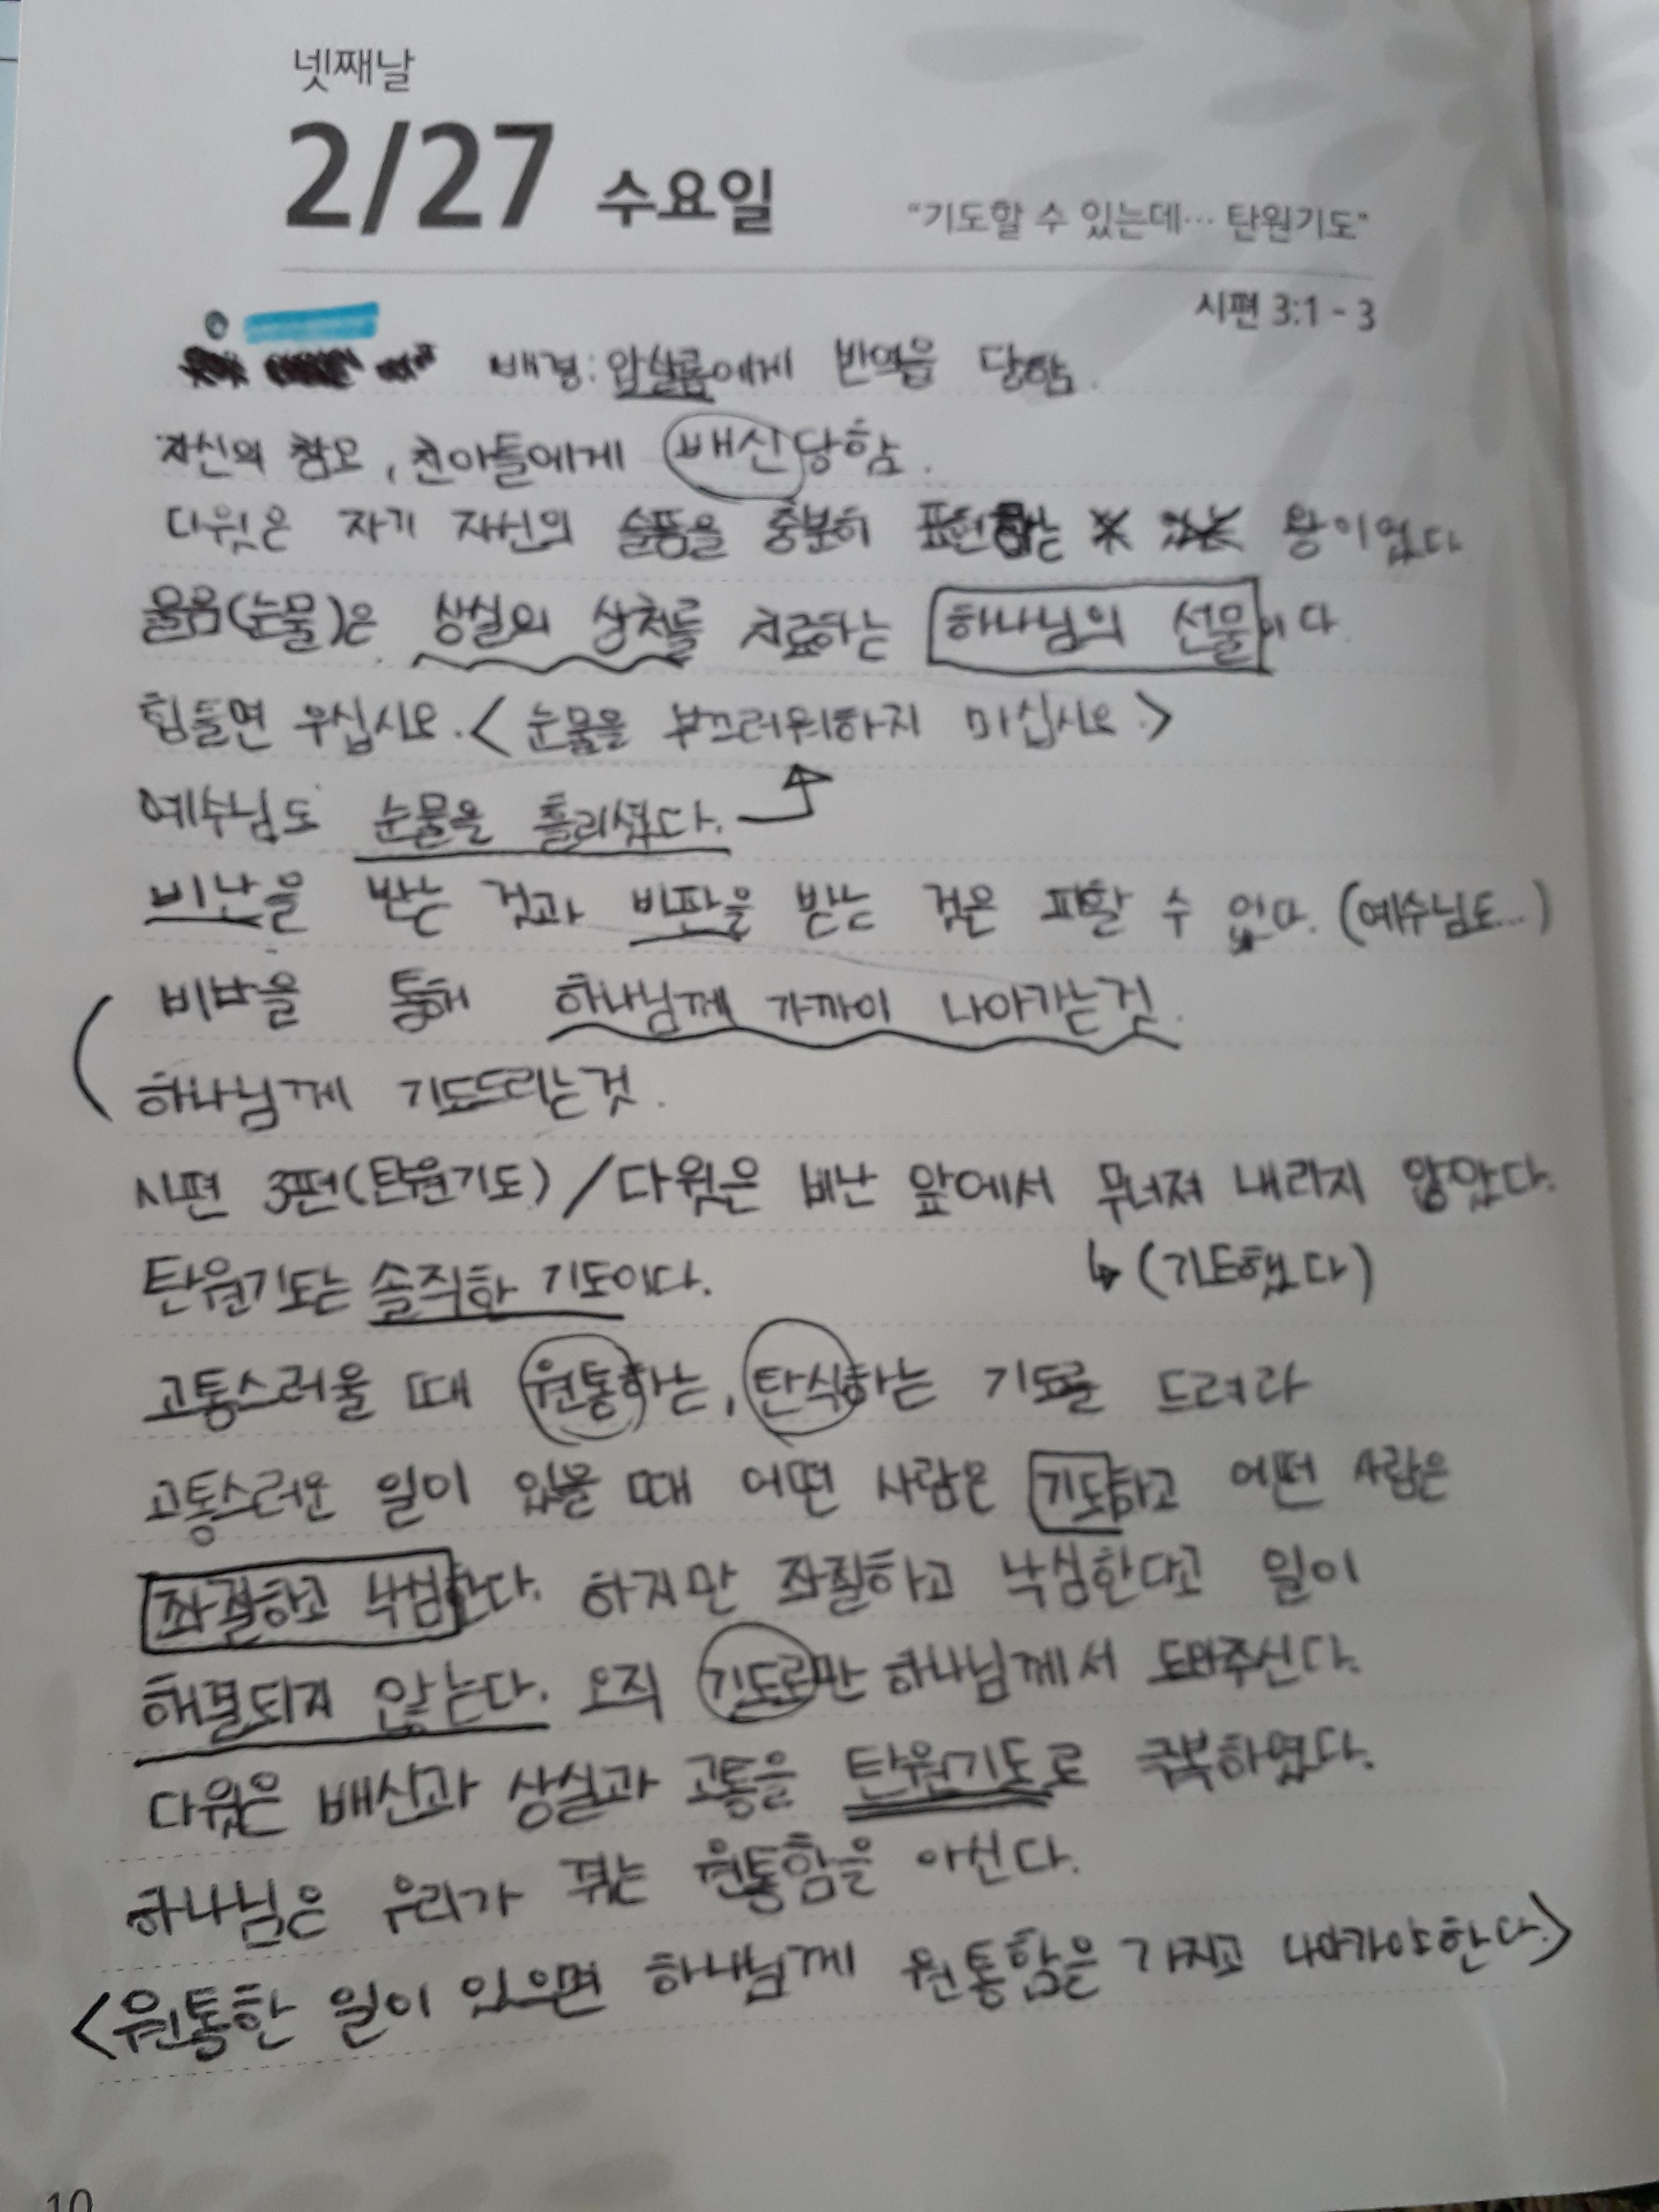 넷째날
2/27 수요일
"기도할 수 있는데… 탄원기도"
시편 3:1 - 3
배경: 압살롬에게 반역을 당함.
자신의 참모, 친아들에게 배신당함.
다윗은 자기 자신의 슬픔을 충분히 표현하는 왕이었다
울음(눈물)은 상실의 상처를 치료하는 하나님의 선물이다
힘들면 우십시요. <눈물을 부끄러워하지 마십시요.>
예수님도 눈물을 흘리셨다.
비난을 받는 것과 비판을 받는 것은 피할 수 없다. (예수님도...)
통해 하나님께 가까이 나아가는것.
하나님께 기도드리는것.
시편 3편(탄원기도) / 다윗은 비난 앞에서 무너져 내리지 않았다.
탄원기도는 솔직한 기도이다.
↳ (기도했다)
고통스러울 때 원통하는, 탄식하는 기도를 드려라
고통스러운 일이 있을 때 어떤 사람은 기도하고 어떤 사람은
좌절하고 낙심한다. 하지만 좌절하고 낙심한다고 일이
해결되지 않는다. 오직 기도로만 하나님께서 도와주신다.
다윗은 배신과 상실과 고통을 탄원기도로 극복하였다.
하나님은 우리가 원통함을 아신다.
<원통한 일이 있으면 하나님께 원통함을 가지고 나아가야한다.>
10